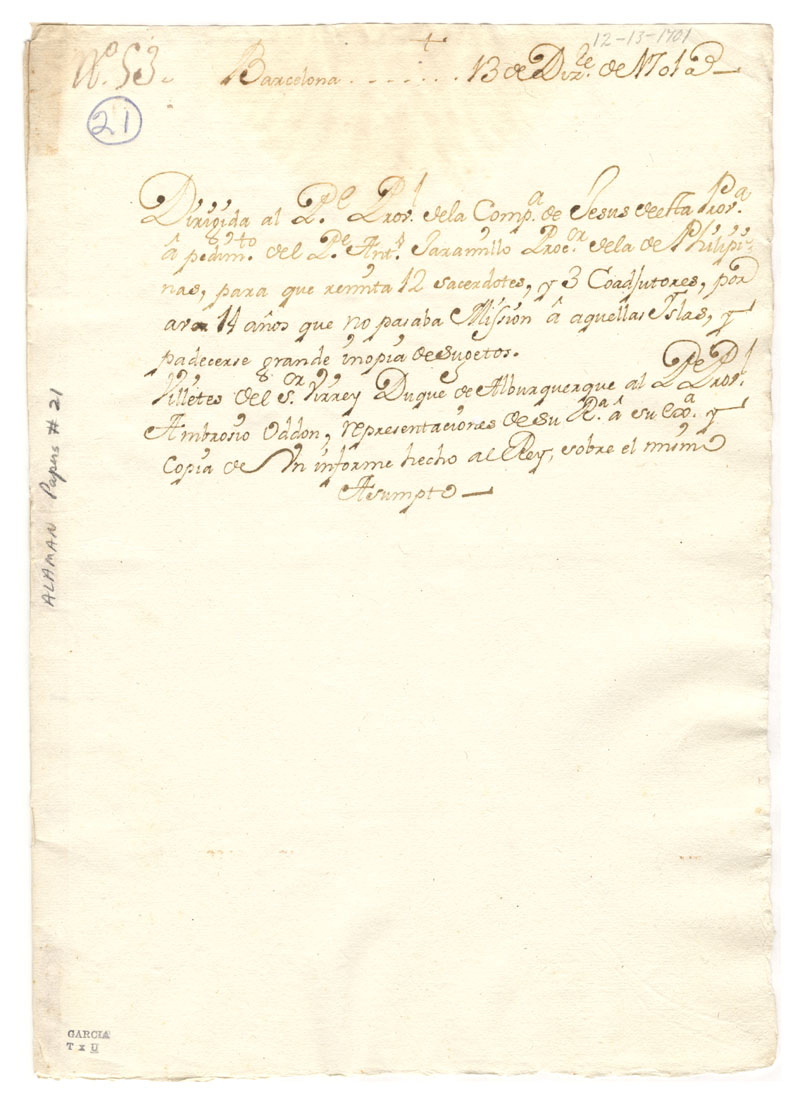 12-13-1701
+
No. 53. Barcelona . . . . . . . 13 de Dizre. de 1701 as —
21
Dirigida al Pe. Provl. de la Compa. de Jesus de esta Prova.
â pedimto. del Pe. Anto. Jaramillo Procor. de la de Philipi-
nas, para que remita 12 sacerdotes, y 3 Coadjutores, por
avar 14 años que no pasaba Mission â aquellas Islas, y
padecerse grande inopia de sugetos.
Villetes del sor. Virrey Duque de Alburquerque al Pe. Provl.
Ambrosio Oddon, representaciones de su Ra. â su Exa. y
Copia de Un informe hecho al Rey, sobre el mismo
Asumpto —
ALAMAN Papers # 21
GARCIA
T x U